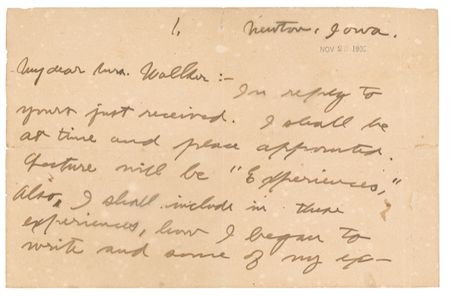 1.
Newton, Iowa.
NOV 2 1902
My dear Mrs. Walker :-
In reply to
yours just received. I shall be
at time and place appointed.
Lecture will be "Experiences,"
Also, I shall include in these
experiences, how I began to
write and some of my ex-